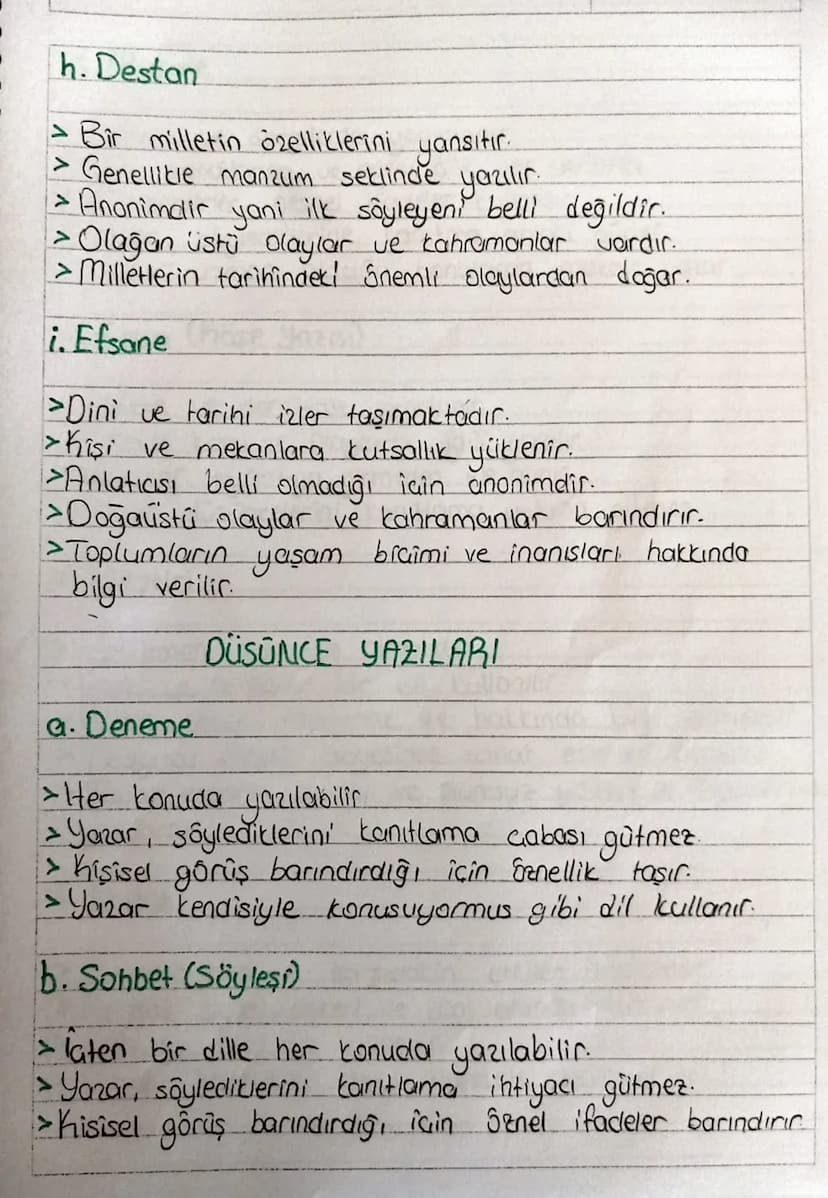 h. Destan
> Bir milletin özelliklerini yansıtır.
> Genellikle manzum seklinde yazılır.
> Anonimdir yani ilk söyleyeni belli değildir.
> Olağan üstü olaylar ve kahramanlar vardır.
> Milletlerin tarihindeki önemli olaylardan doğar.
i. Efsane
> Dini ve tarihi izler taşımaktadır.
> Kişi ve mekanlara kutsallık yüklenir.
> Anlatıcısı belli olmadığı için anonimdir.
> Doğaüstü olaylar ve kahramanlar barındırır.
> Toplumların yaşam biçimi ve inanısları hakkında
bilgi verilir.
DÜSÜNCE YAZILARI
a. Deneme
> Her konuda yazılabilir.
> Yazar, söylediklerini kanıtlama cabası gütmez.
> Kişisel görüş barındırdığı için öznellik taşır.
> Yazar kendisiyle konusuyormus gibi dil kullanır.
b. Sohbet (Söyleşi)
> İçten bir dille her konuda yazılabilir.
> Yazar, söylediklerini kanıtlama ihtiyacı gütmez.
> Kisisel görüş barındırdığı için öznel ifadeler barındırır.